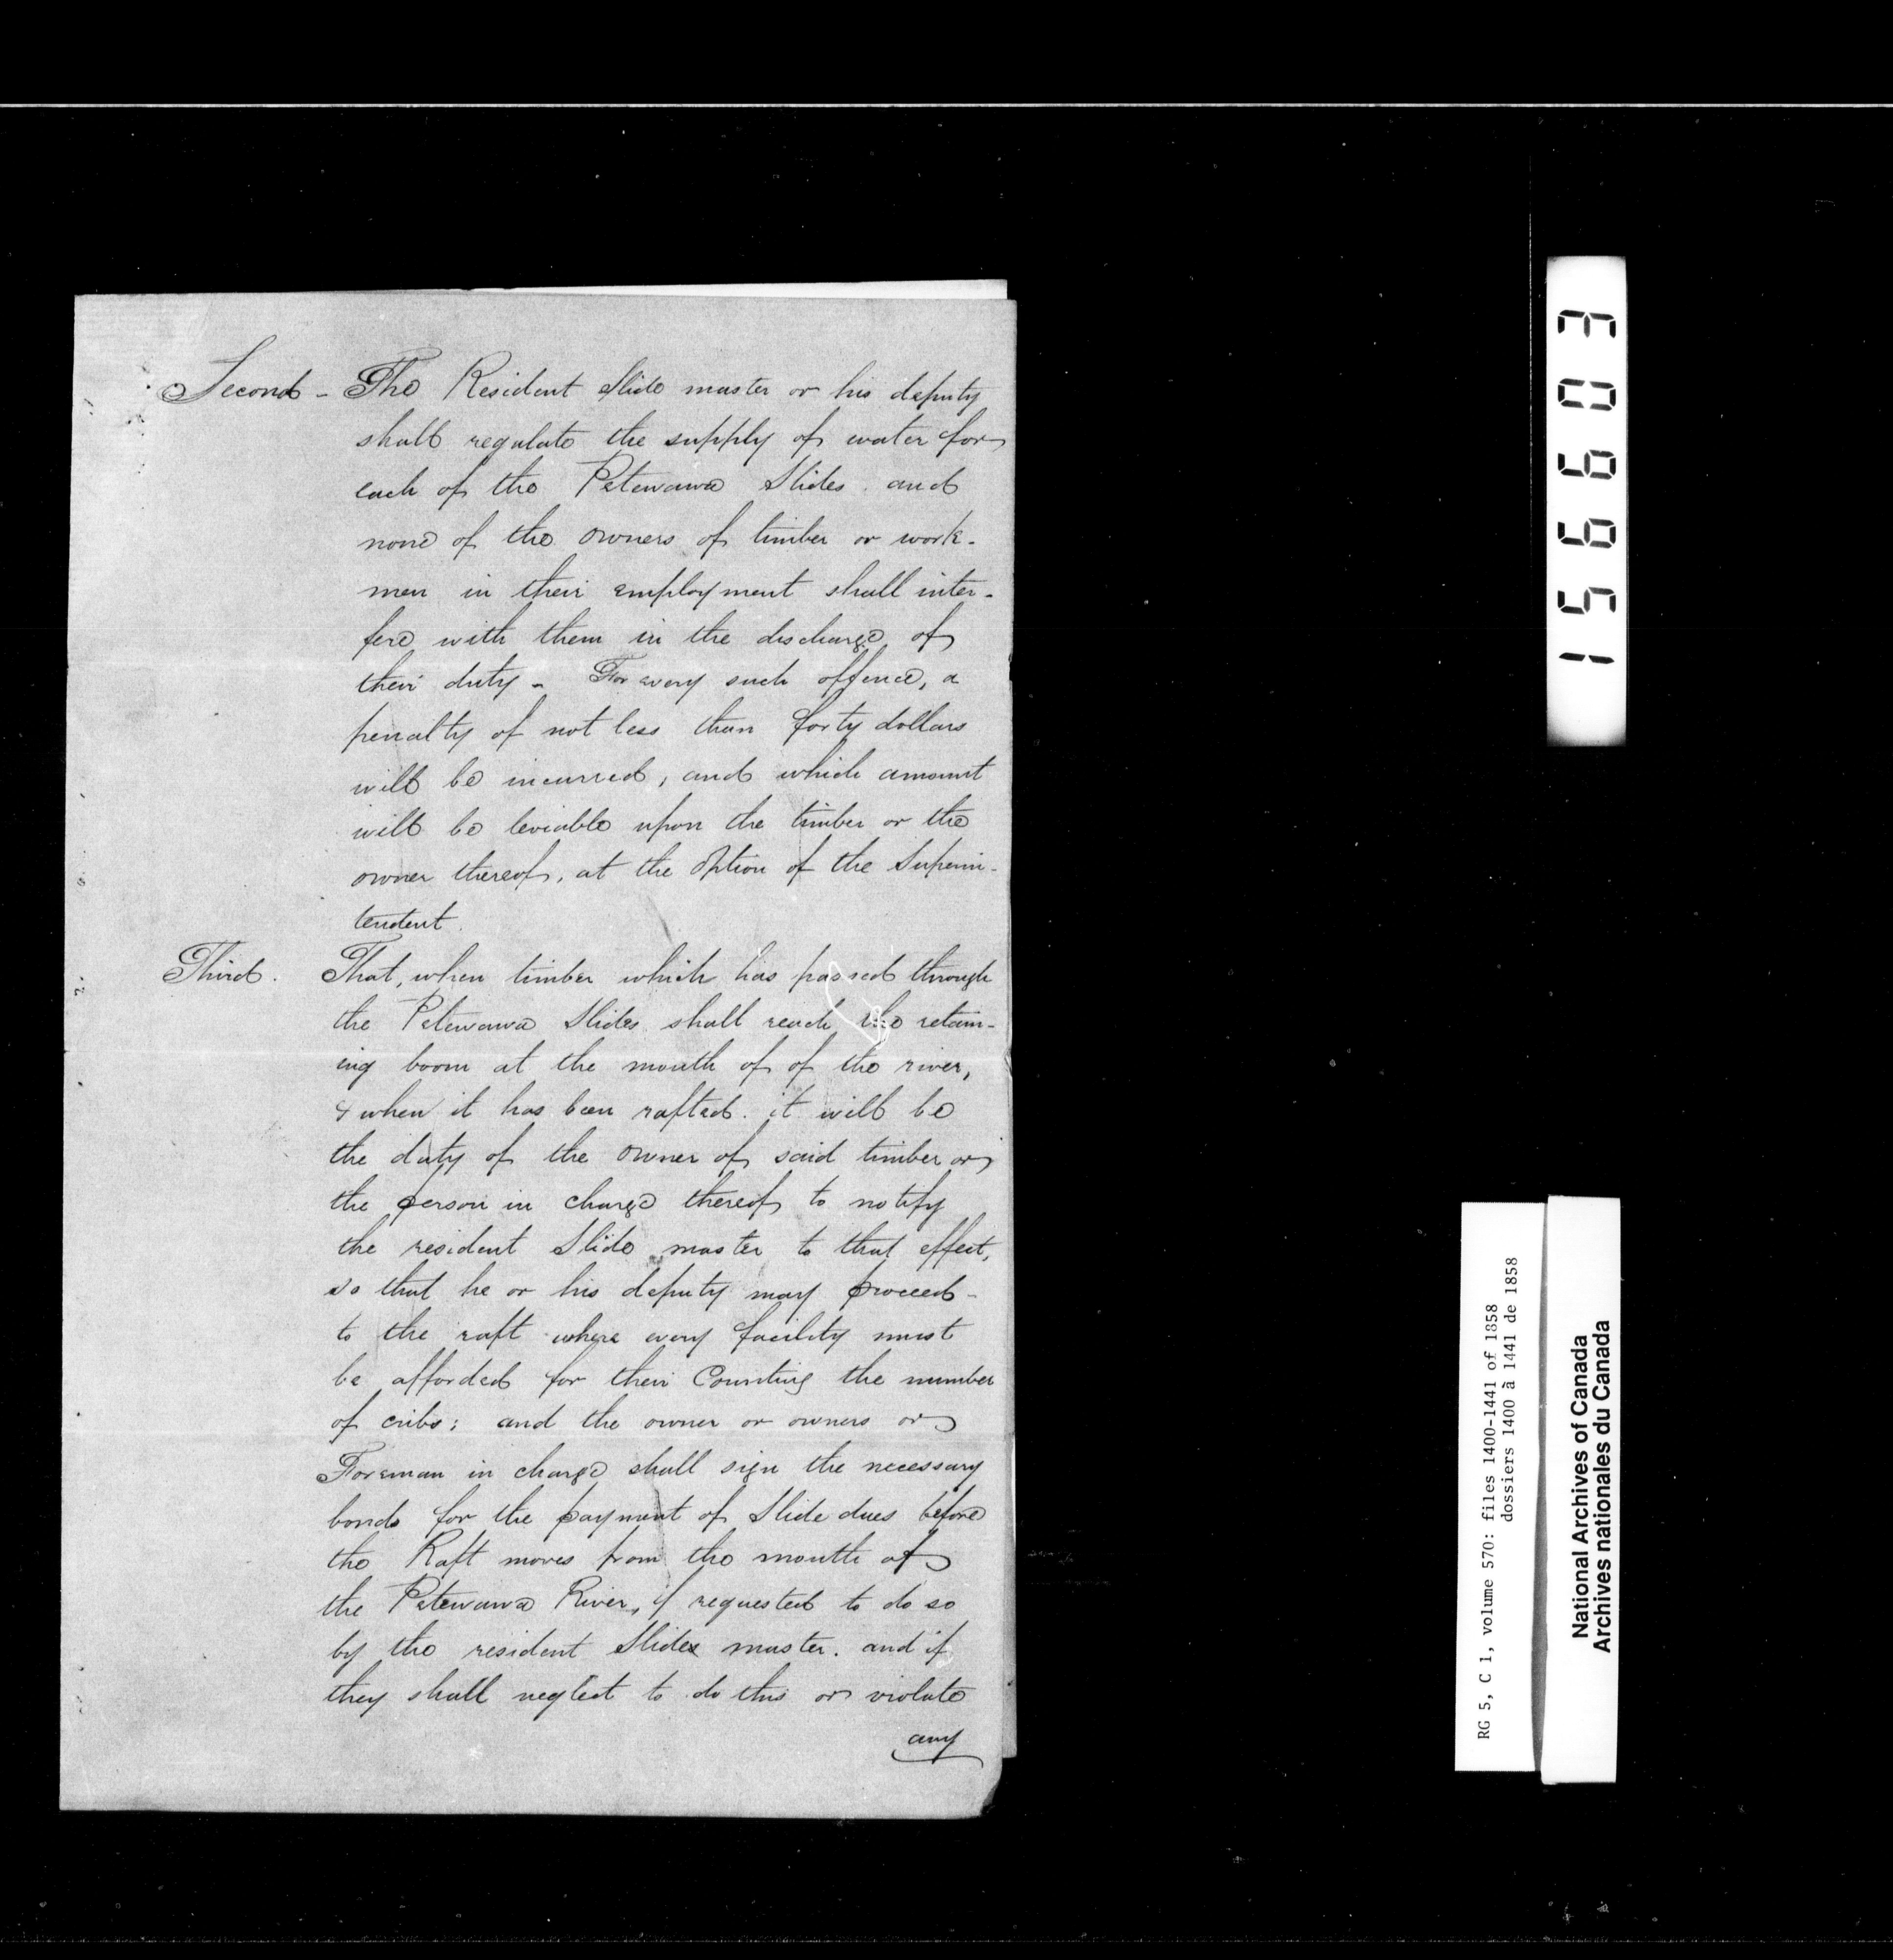 Second - The Resident Slide master or his deputy
shall regulate the supply of water for
each of the Petewawa Slides and
none of the owners of timber or work-
men in their employment shall inter-
fere with them in the discharge of
their duty - For every such offence, a
penalty of not less than forty dollars
will be incurred, and which amount
will be leviable upon the timber or the
owner thereof, at the Option of the Superin-
tendent.
Third. That, when timber which has passed through
the Petewawa Slides shall reach the retain-
ing boom at the mouth of of the river,
& when it has been rafted. it will be
the duty of the owner of said timber or
the person in charge thereof to notify
the resident Slide master to that effect,
so that he or his deputy may proceed -
to the raft where every facility must
be afforded for their Counting the number
of cribs; and the owner or owners or
Foreman in charge shall sign the necessary
bonds for the payment of Slide dues before
the Raft moves from the mouth of
the Petewawa River, if requested to do so
by the resident Slides master. and if
they shall neglect to do this or violate
any
156603
RG 5, C 1, volume 570: files 1400-1441 of 1858
dossiers 1400 à 1441 de 1858
National Archives of Canada
Archives nationales du Canada